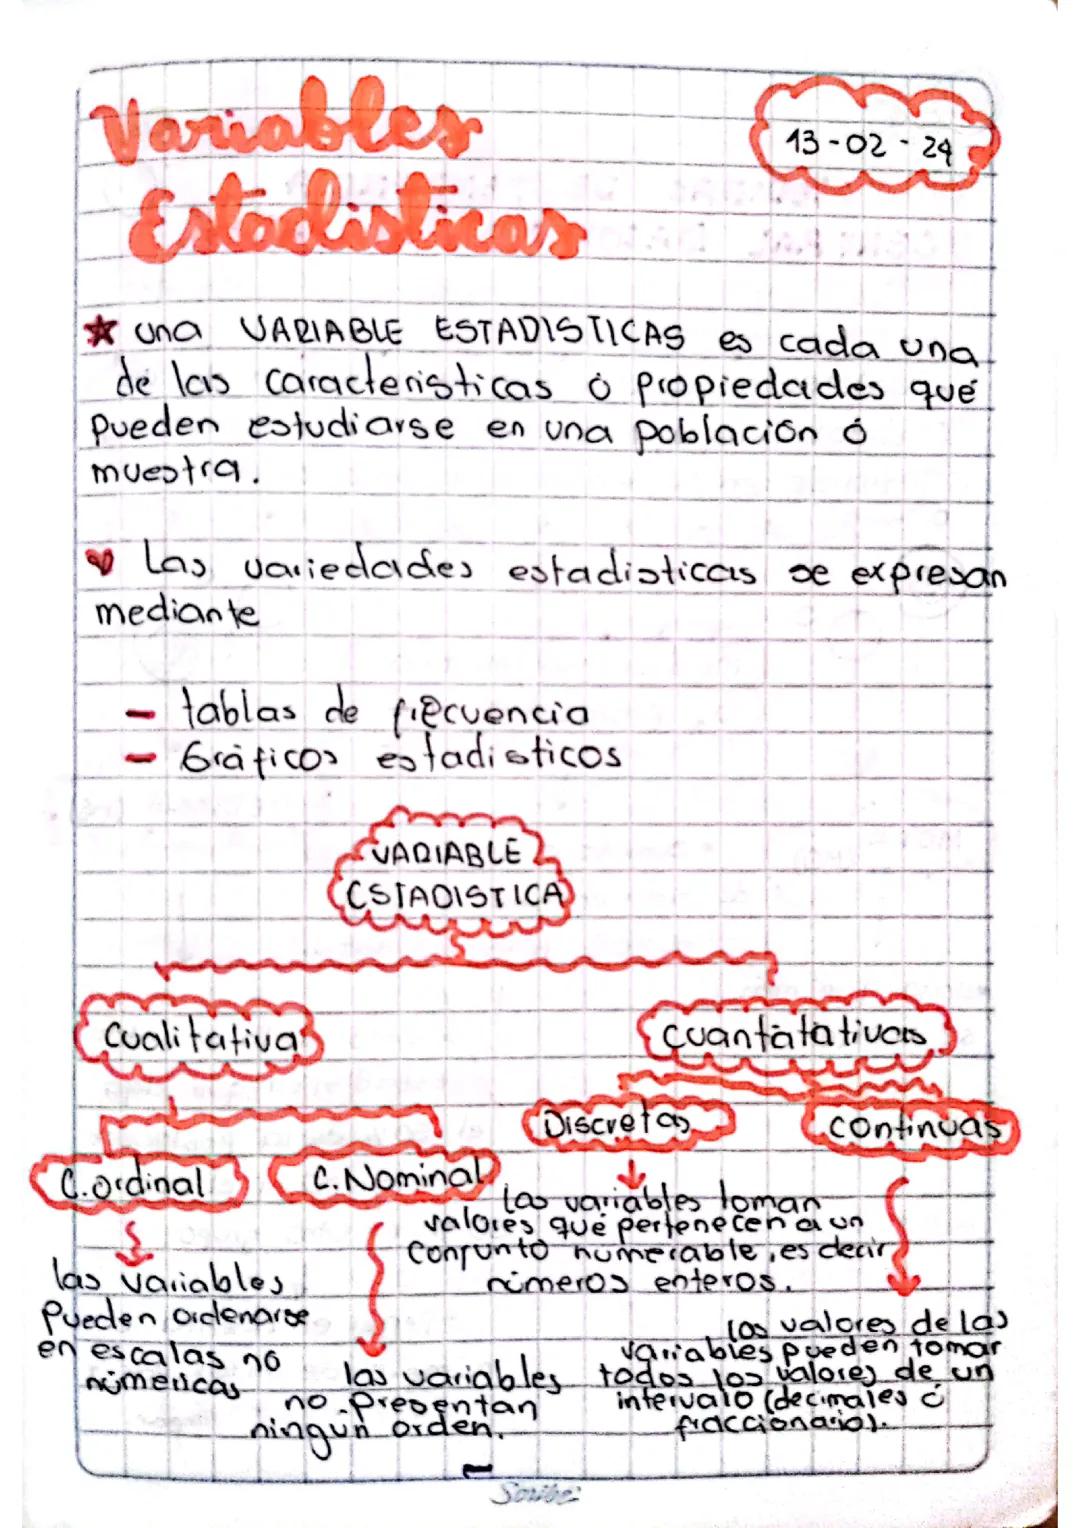 Variables
13-02-24
Estadisticas
una VARIABLE ESTADISTICAS es cada una
de las caracteristicas ó propiedades qué
pueden estudiarse en una población ó
muestra.
Las variedades estadisticas se expresan
mediante
- tablas de frecuencia
- Gráficos estadisticos
VARIABLE
ESTADISTICA
Cualitativa
cuantátativas
Discretas
continuas
C.ordinal
C.Nominal
las variables toman
valores qué pertenecen a un
Conjunto numerable, es decir
números enteros.
las variables
Pueden ordenarse
en escalas no
númericas
las variables
no presentan
ningún orden.
los valores de las
variables pueden tomar
todos los valores de un
intervalo (decimales ó
fraccionario).
Scribe